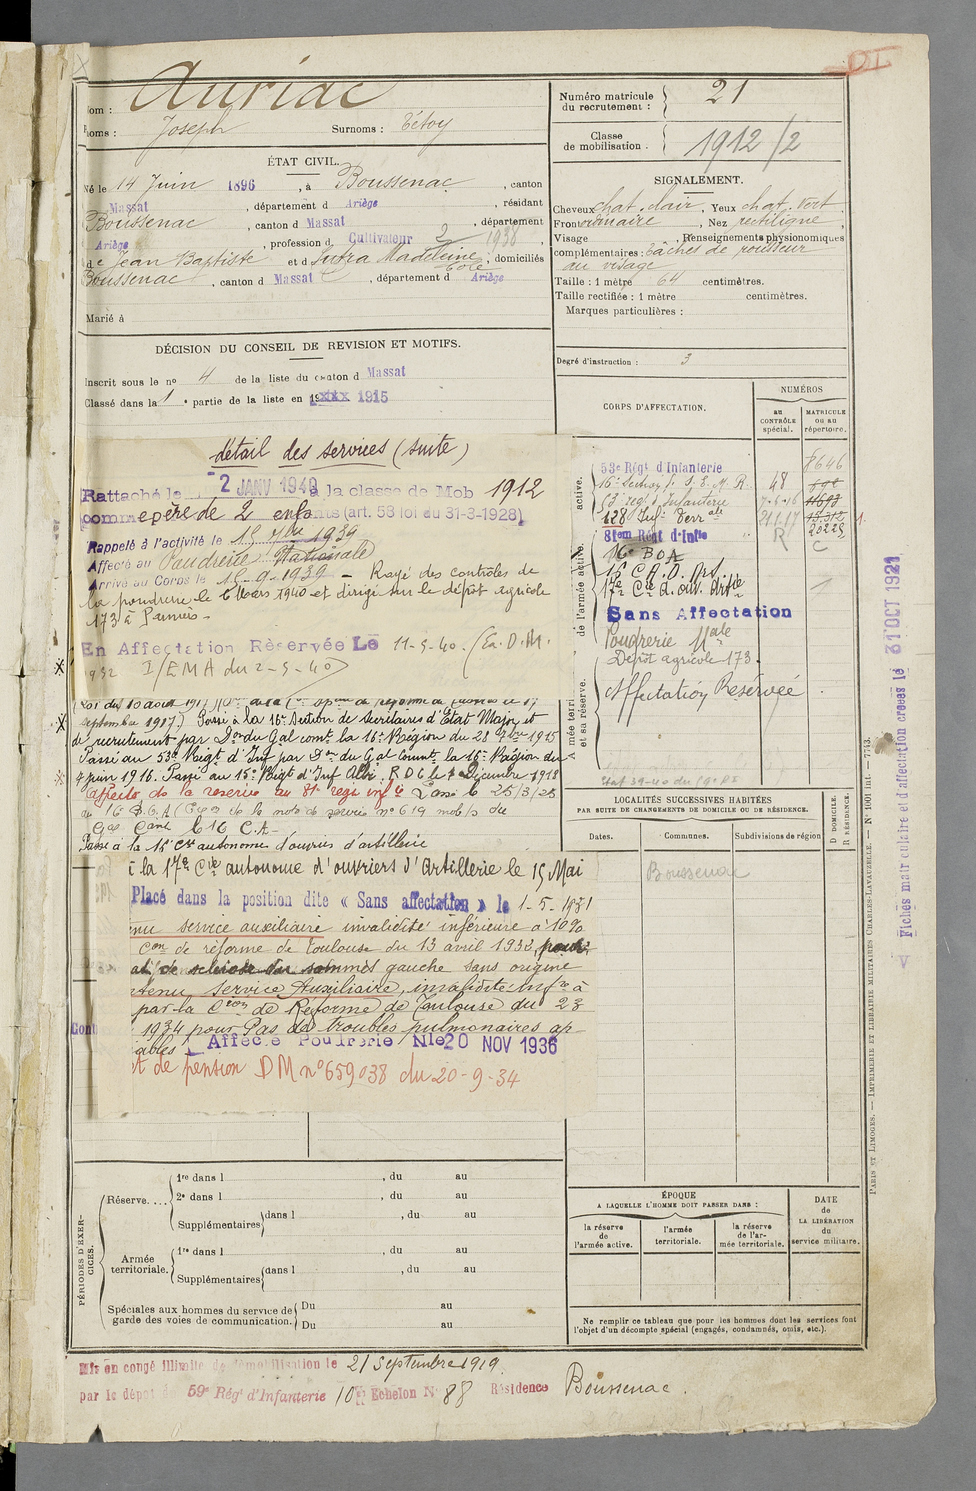 DI
Nom : Auriac
Prénoms : Joseph Surnoms : Tétoy
Numéro matricule du recrutement : 21
Classe de mobilisation . 1912/2
ÉTAT CIVIL.
Né le 14 Juin 1896, à Boussenac, canton
Massat, département d Ariège, résidant
Boussenac, canton d Massat, département
Ariège, profession d Cultivateur 2/1938
de Jean Baptiste et d Sutra Madeleine, domiciliés
Boussenac, canton d Massat, département d Ariège
Marié à
SIGNALEMENT.
Cheveux chat. clair, Yeux chat. vert,
Front ordinaire, Nez rectiligne,
Visage , Renseignements physionomiques
complémentaires : tâches de rousseur
au visage
Taille : 1 mètre 64 centimètres.
Taille rectifiée : 1 mètre centimètres.
Marques particulières :
Degré d'instruction : 3
DÉCISION DU CONSEIL DE REVISION ET MOTIFS.
Inscrit sous le no 4 de la liste du canton d Massat
Classé dans la 1e partie de la liste en 19xxx 1915
détail des services (suite)
Rattaché le 2 JANV 1940 à la classe de Mob 1912
comme père de 2 enfants (art. 58 loi du 31-3-1928)
Rappelé à l'activité le 15 7bre 1939
Affecté au Poudrerie Nationale
Arrivé au Corps le 15-9-1939 – Rayé des contrôles de
la poudrerie le 6 Mars 1940 et dirigé sur le dépôt agricole
173 à Pamiers -
En Affectation Rèservée Le 11-5-40. (Ex. D.M.
932 I/EMA du 2-5-40)
septembre 1917.) Passé à la 16e Section de Secrétaires d'Etat Major et
de recrutement par Don du Gal comt la 16e Région du 28 9bre 1915
Passé au 53e Regt d'Inf par Don du Gal Commt la 16e Région du
4 juin 1916. Passé au 15e Regt d'Inf Albi. RDC le 7 Décembre 1918
Affecté de la réserve au 81e regt inf ie Passé le 25/3/28
au 16e B.O.A
Gal Comt le 16e C.A –
Passé à la 16e Cie autonome d'ouvriers d'artillerie
à la 17e Cie autonome d'ouvriers d'Artillerie le 15 Mai
Placé dans la position dite « Sans affectation » le 1-5-1931
service auxiliaire invalidité inférieure à 10%
Con de réforme de Toulouse du 13 avril 1932 pour
de sclérose du sommet gauche sans origine
service Auxiliaire, invalidité infre à
par la Con de Réforme de Toulouse du 23
1934 pour Pas de troubles pulmonaires ap-
ables Affecté Poudrerie Nle 20 NOV 1936
t de pension DM no 659038 du 20-9-34
CORPS D'AFFECTATION.
NUMÉROS
au CONTRÔLE spécial.
MATRICULE ou au répertoire.
active.
de l'armée active.
Armée territ
et sa réserve.
53e Régt d'Infanterie 7646
16e Section d. S. E. M. R. 48
53 regt d'Infanterie 7-6-16 11693
128 Inf. Terr ale 21.1.17 15.312
81em Régt d'Inftie R 20229
16e BOA C
16e C.A.O. Art
17e Cie d. ouv. Artie
Sans Affectation
Poudrerie Nale
Dépôt agricole 173.
Affectation Reservée
LOCALITÉS SUCCESSIVES HABITÉES
PAR SUITE DE CHANGEMENTS DE DOMICILE OU DE RÉSIDENCE.
Dates. Communes. Subdivisions de région
D DOMICILE.
R RÉSIDENCE.
Boussenac
ÉPOQUE
A LAQUELLE L'HOMME DOIT PASSER DANS :
la réserve de l'armée active.
l'armée territoriale.
la réserve de l'armée territoriale.
DATE de LA LIBÉRATION du service militaire.
Ne remplir ce tableau que pour les hommes dont les services font
l'objet d'un décompte spécial (engagés, condamnés, omis, etc.).
PÉRIODES D'EXERCICES.
Réserve.... 1re dans l , du au
2e dans l , du au
Supplémentaires dans l , du au
Armée territoriale. 1re dans l , du au
Supplémentaires dans l , du au
Spéciales aux hommes du service de garde des voies de communication. Du au
Du au
Mis en congé illimité de démobilisation le 21 Septembre 1919
par le dépôt du 59e Régt d'Infanterie 10e Echelon No 88 Résidence Boussenac.
Fiches matriculaire et d'affectation créées le 31 OCT 1921
PARIS ET LIMOGES. — IMPRIMERIE ET LIBRAIRIE MILITAIRES CHARLES-LAVAUZELLE. — No 1001 int. — 7743.